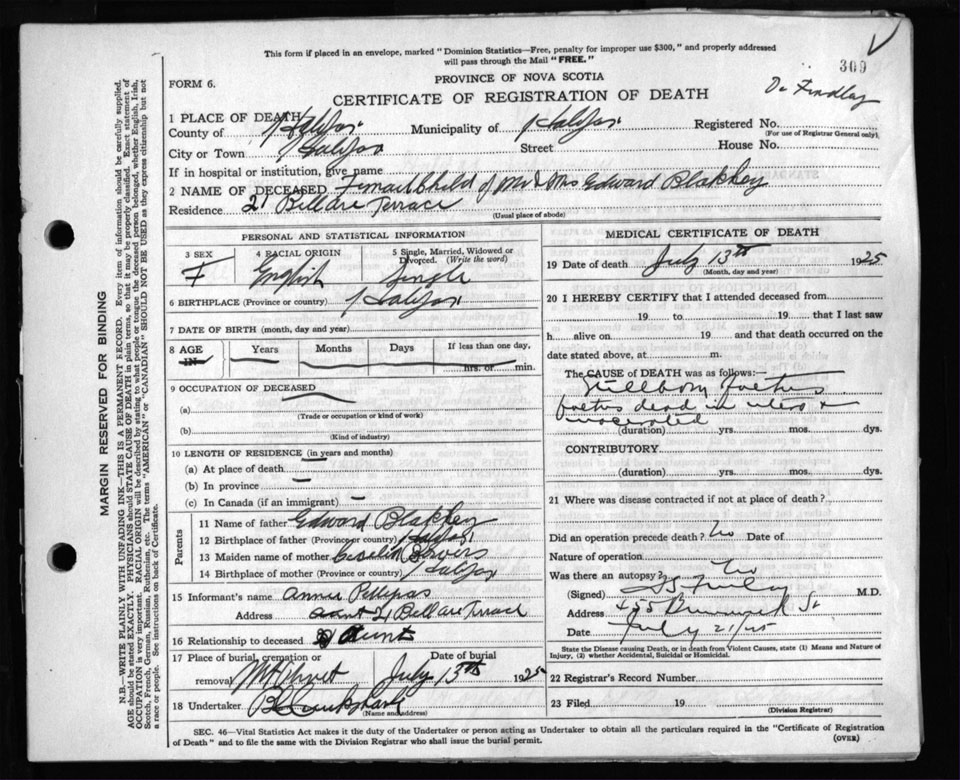 This form if placed in an envelope, marked "Dominion Statistics—Free, penalty for improper use $300," and properly addressed
will pass through the Mail "FREE."
309
FORM 6.
PROVINCE OF NOVA SCOTIA
Dr Findlay
CERTIFICATE OF REGISTRATION OF DEATH
1 PLACE OF DEATH
County of Halifax Municipality of Halifax Registered No.
(For use of Registrar General only)
City or Town Halifax Street House No.
If in hospital or institution, give name
2 NAME OF DECEASED Femail Child of Mr & Mrs Edward Blakney
Residence 21 Bell aire Terrace
(Usual place of abode)
PERSONAL AND STATISTICAL INFORMATION
3 SEX 4 RACIAL ORIGIN 5 Single, Married, Widowed or
Divorced. (Write the word)
F English Single
6 BIRTHPLACE (Province or country) Halifax
7 DATE OF BIRTH (month, day and year)
8 AGE Years Months Days If less than one day,
IN hrs. or min.
9 OCCUPATION OF DECEASED
(a)
(Trade or occupation or kind of work)
(b)
(Kind of industry)
10 LENGTH OF RESIDENCE (in years and months)
(a) At place of death
(b) In province
(c) In Canada (if an immigrant)
Parents
11 Name of father Edward Blakney
12 Birthplace of father (Province or country) Halifax
13 Maiden name of mother Bowers
14 Birthplace of mother (Province or country) Halifax
15 Informant's name Annie Pettipas
Address 21 Bell aire Terrace
16 Relationship to deceased Aunt
17 Place of burial, cremation or Date of burial
removal Mt Olivet July 13th 1925
18 Undertaker
(Name and address)
MEDICAL CERTIFICATE OF DEATH
19 Date of death July 13th 1925
(Month, day and year)
20 I HEREBY CERTIFY that I attended deceased from
19 to 19 that I last saw
h alive on 19 and that death occurred on the
date stated above, at m.
The CAUSE OF DEATH was as follows:—
Stillborn foetus
foetus dead in utero &
macerated
(duration) yrs. mos. dys.
CONTRIBUTORY
(duration) yrs. mos. dys.
21 Where was disease contracted if not at place of death?
Did an operation precede death? No Date of
Nature of operation
Was there an autopsy? No
(Signed) M.D.
Address 455 Brunswick St
Date July 21/25
State the Disease causing Death, or in death from Violent Causes, state (1) Means and Nature of
Injury, (2) whether Accidental, Suicidal or Homicidal.
22 Registrar's Record Number
23 Filed 19
(Division Registrar)
SEC. 46—Vital Statistics Act makes it the duty of the Undertaker or person acting as Undertaker to obtain all the particulars required in the "Certificate of Registration
of Death" and to file the same with the Division Registrar who shall issue the burial permit.
(OVER)
MARGIN RESERVED FOR BINDING
N.B.—WRITE PLAINLY WITH UNFADING INK—THIS IS A PERMANENT RECORD. Every item of information should be carefully supplied.
AGE should be stated EXACTLY. PHYSICIANS should STATE CAUSE OF DEATH in plain terms, so that it may be properly classified. Exact statement of
OCCUPATION is very important. RACIAL ORIGIN will be described by stating to what people or tongue the deceased person belonged, whether English, Irish,
Scotch, French, German, Russian, Ruthenian, etc. The terms "AMERICAN" or "CANADIAN" SHOULD NOT BE USED as they express citizenship but not
a race or people. See instructions on back of Certificate.